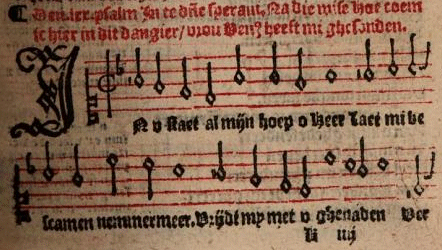 Den .lxx. psalm In te dñe speraui, Na die wise hoe coem
ic hier in dit dangier/ vrou Ven⁹ heeft mi ghesonden.
IN v staet al mijn hoep o heer Laet mi be
scamen nemmermeer. Vrijdt my met v ghenaden Ver
li iiij